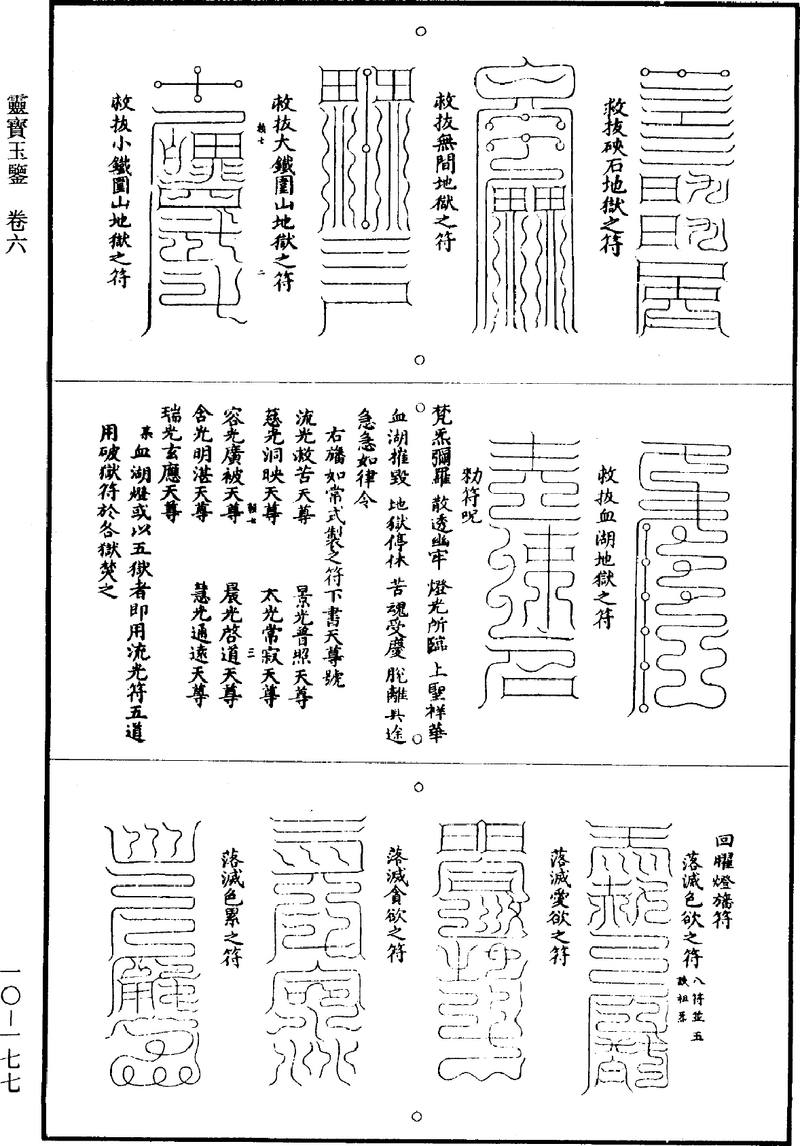 靈寶玉鑒　卷六
救拔硤石地獄之符
救拔無間地獄之符
救拔大鐵圍山地獄之符
救拔小鐵圍山地獄之符
救拔血湖地獄之符
勑符呪
梵炁彌羅　散透幽牢　燈光所臨　上聖祥華
血湖摧毀　地獄停休　苦魂受慶　脫離其途
急急如律令
右旛如常式製之符下書天尊號
流光救苦天尊　景光普照天尊
慈光洞映天尊　太光常寂天尊
容光廣被天尊　晨光啓道天尊
含光明湛天尊　慧光通遠天尊
瑞光玄應天尊
血湖燈或以五獄者即用流光符五道
用破獄符於各獄焚之
回曜燈旛符
落滅色欲之符　八符並五
落滅愛欲之符
落滅貪欲之符
落滅色累之符
一〇—一七七